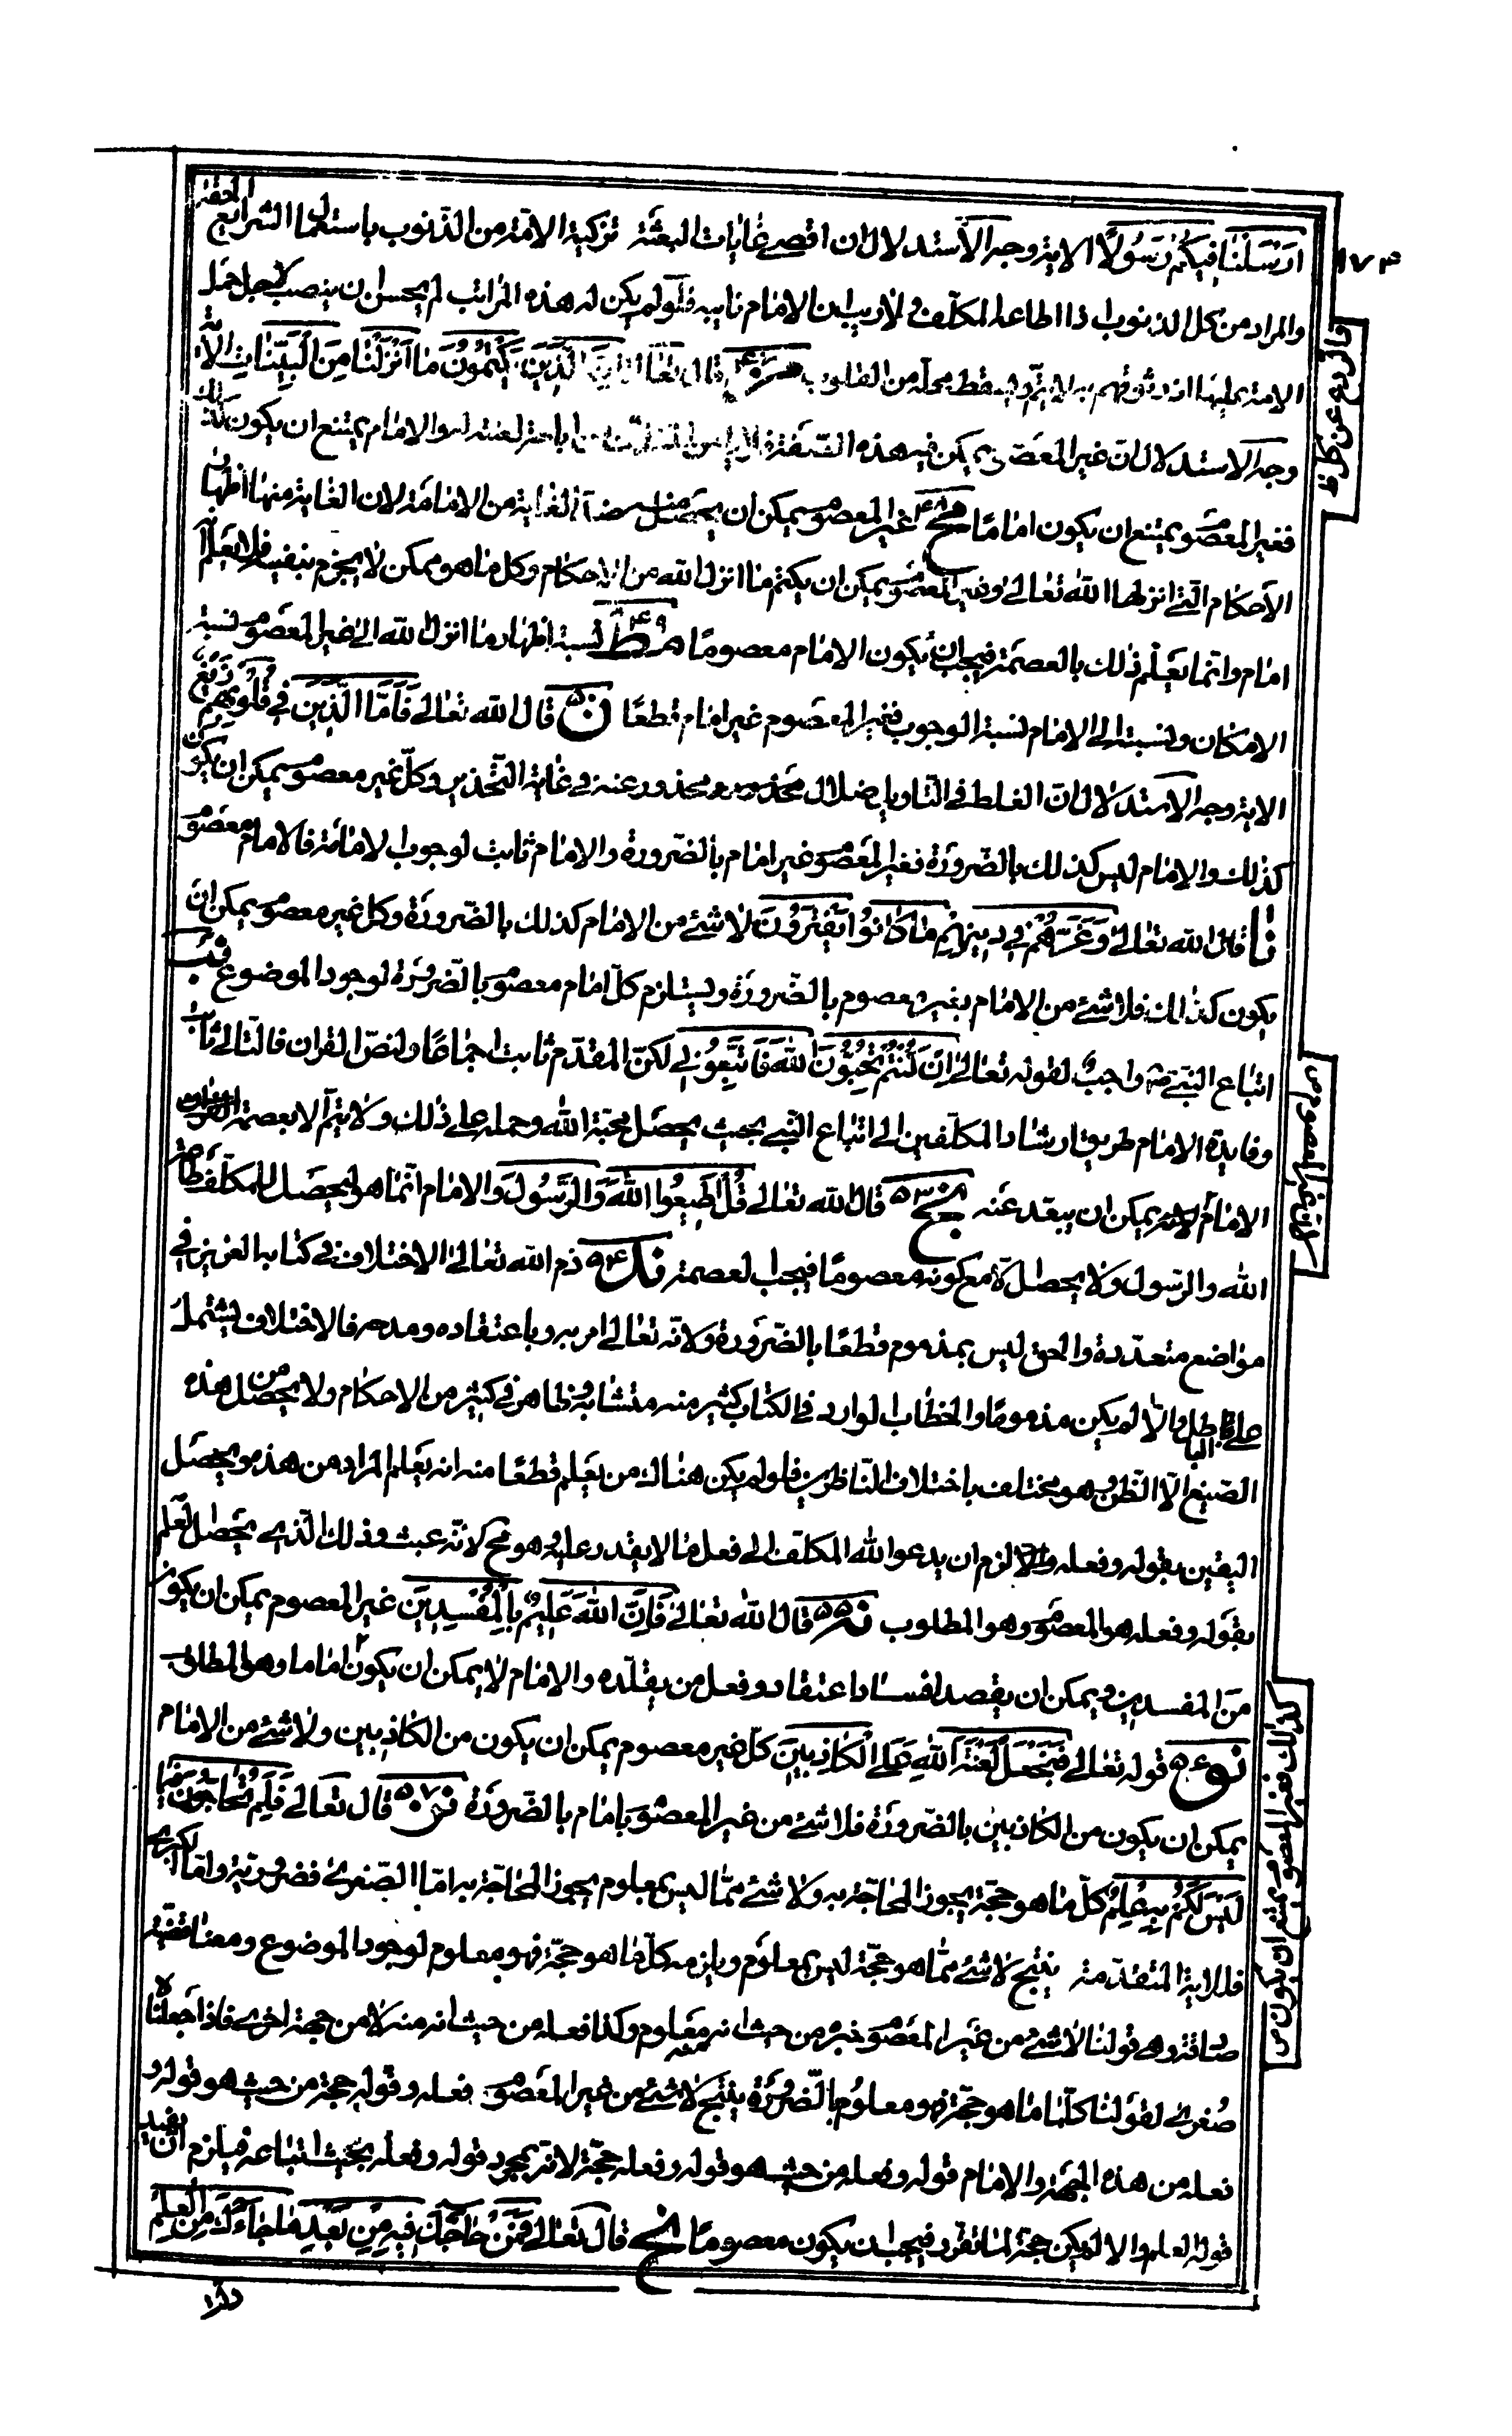 ١٧٣
ارسلنا فيكم رسولا الاية وجه الاستدلال ان اقصى غايات البعثة تزكية الامة من الذنوب باستعمال الشرايع الحقة
والمراد من كل الذنوب اذا اطاعه المكلف ولا ريب ان الامام نايبه فلو لم يكن له هذه المراتب لم يحسن ان ينصب لاجل حمل
الامة عليها قال تعالى ان الذين يكتمون ما انزلنا من البينات الاية
وجه الاستدلال ان غير المعصوم يمكن فيه هذه الصفة والامام يمتنع ان يكون كذلك
فغير المعصوم يمتنع ان يكون اماما مح ٤٨ غير المعصوم يمكن ان يحصل منه ضد الغاية من الامامة لان الغاية منها اظهار
الأحكام التي انزلها الله تعالى وغير المعصوم يمكن ان يكتم ما انزل الله من الاحكام وكل ما هو ممكن لا يجزم بنفيه فلا يعلم انه
امام وانما يعلم ذلك بالعصمة فيجب ان يكون الامام معصوما مط ٤٩ نسبة اظهار ما انزل الله الى غير المعصوم نسبة
الامكان ونسبته الى الامام نسبة الوجوب فغير المعصوم غير امام قطعا ن ٥٠ قال الله تعالى فاما الذين في قلوبهم زيغ
الاية وجه الاستدلال ان الغلط في التاويل ضلال محذور ومحذور عنه في غاية التحذير وكل غير معصوم يمكن ان يكون
كذلك والامام ليس كذلك بالضرورة فغير المعصوم غير امام بالضرورة والامام ثابت لوجوب الامامة فالامام معصوم
نا قال الله تعالى وغرهم في دينهم ما كانوا يفترون لا شئ من الامام كذلك بالضرورة وكل غير معصوم يمكن ان
يكون كذلك فلا شئ من الامام بغير معصوم بالضرورة ويستلزم كل امام معصوم بالضرورة لوجود الموضوع نب
اتباع النبي ص واجب لقوله تعالى ان كنتم تحبون الله فاتبعوني لكن المقدم ثابت اجماعا ولنص القران فالتالي ثابت
وفايدة الامام طريق ارشاد المكلفين الى اتباع النبي بحيث يحصل محبة الله وحمله على ذلك ولا يتم الا بعصمة
الامام لانه يمكن ان يبعد عنه نج ٥٣ قال الله تعالى قل اطيعوا الله والرسول والامام انما هو ليحصل للمكلف طاعة
الله والرسول ولا يحصل الا مع كونه معصوما فيجب لعصمته ند ٥٤ ذم الله تعالى الاختلاف في كتابه العزيز في
مواضع متعددة والحق ليس بمذموم قطعا بالضرورة ولانه تعالى امر به وباعتقاده ومدحه فالاختلاف يشتمل
على الباطل والا لم يكن مذموما والخطاب الوارد في الكتاب كثير منه متشابه وظاهر في كثير من الاحكام ولا يحصل من هذه
الصيغ الا الظن وهو مختلف باختلاف الناظرين فلو لم يكن هناك من يعلم قطعا منه انه يعلم المراد من هذه ويحصل
اليقين بقوله وفعله والا لزم ان يدعوا الله المكلف الى فعل ما لا يقدر عليه وهو مح لانه عبث وذلك الذي يحصل العلم
بقوله وفعله هو المعصوم وهو المطلوب نه ٥٥ قال الله تعالى فان الله عليم بالمفسدين غير المعصوم يمكن ان يكون
من المفسدين ويمكن ان يقصد افساد اعتقاد وفعل من يقلده والامام لا يمكن ان يكون اماما وهو المطلوب
نو ٥٦ قوله تعالى فنجعل لعنة الله على الكاذبين كل غير معصوم يمكن ان يكون من الكاذبين ولا شئ من الامام
يمكن ان يكون من الكاذبين بالضرورة فلا شئ من غير المعصوم بامام بالضرورة نز ٥٧ قال تعالى فلم تحاجون فيما
ليس لكم به علم كل ما هو حجة يجوز المحاجة به ولا شئ مما ليس بمعلوم يجوز المحاجة به اما الصغرى فضرورية واما الكبرى
فللاية المتقدمة ينتج لا شئ مما هو حجة ليس بمعلوم ويلزمه كل ما هو حجة فهو معلوم لوجود الموضوع ومعنا قضية
صادقة وهي قولنا لا شئ من غير المعصوم خبره من حيث انه معلوم وكذا فعله من حيث انه منه لا من جهة اخرى فاذا جعلناها
صغرى لقولنا كلما ما هو حجة فهو معلوم بالضرورة ينتج لا شئ من غير المعصوم فعله وقوله حجة من حيث هو قوله و
فعله من هذه الجهة والامام قوله وفعله من حيث هو قوله وفعله حجة لانه بمجرد قوله وفعله يجب اتباعه فيلزم ان يفيد
قوله العلم والا لم يكن حجة لما تقرر فيجب ان يكون معصوما نح قال تعالى فمن حاجك فيه من بعد ما جاءك من العلم
كذلك فغير المعصوم يمتنع ان يكون